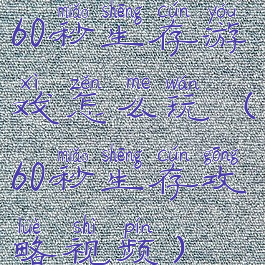 miǎo shēng cún yóu
60秒生存游
xì zěn me wán
戏怎么玩（
miǎo shēng cún gōng
60秒生存攻
lüè shì pín
略视频）